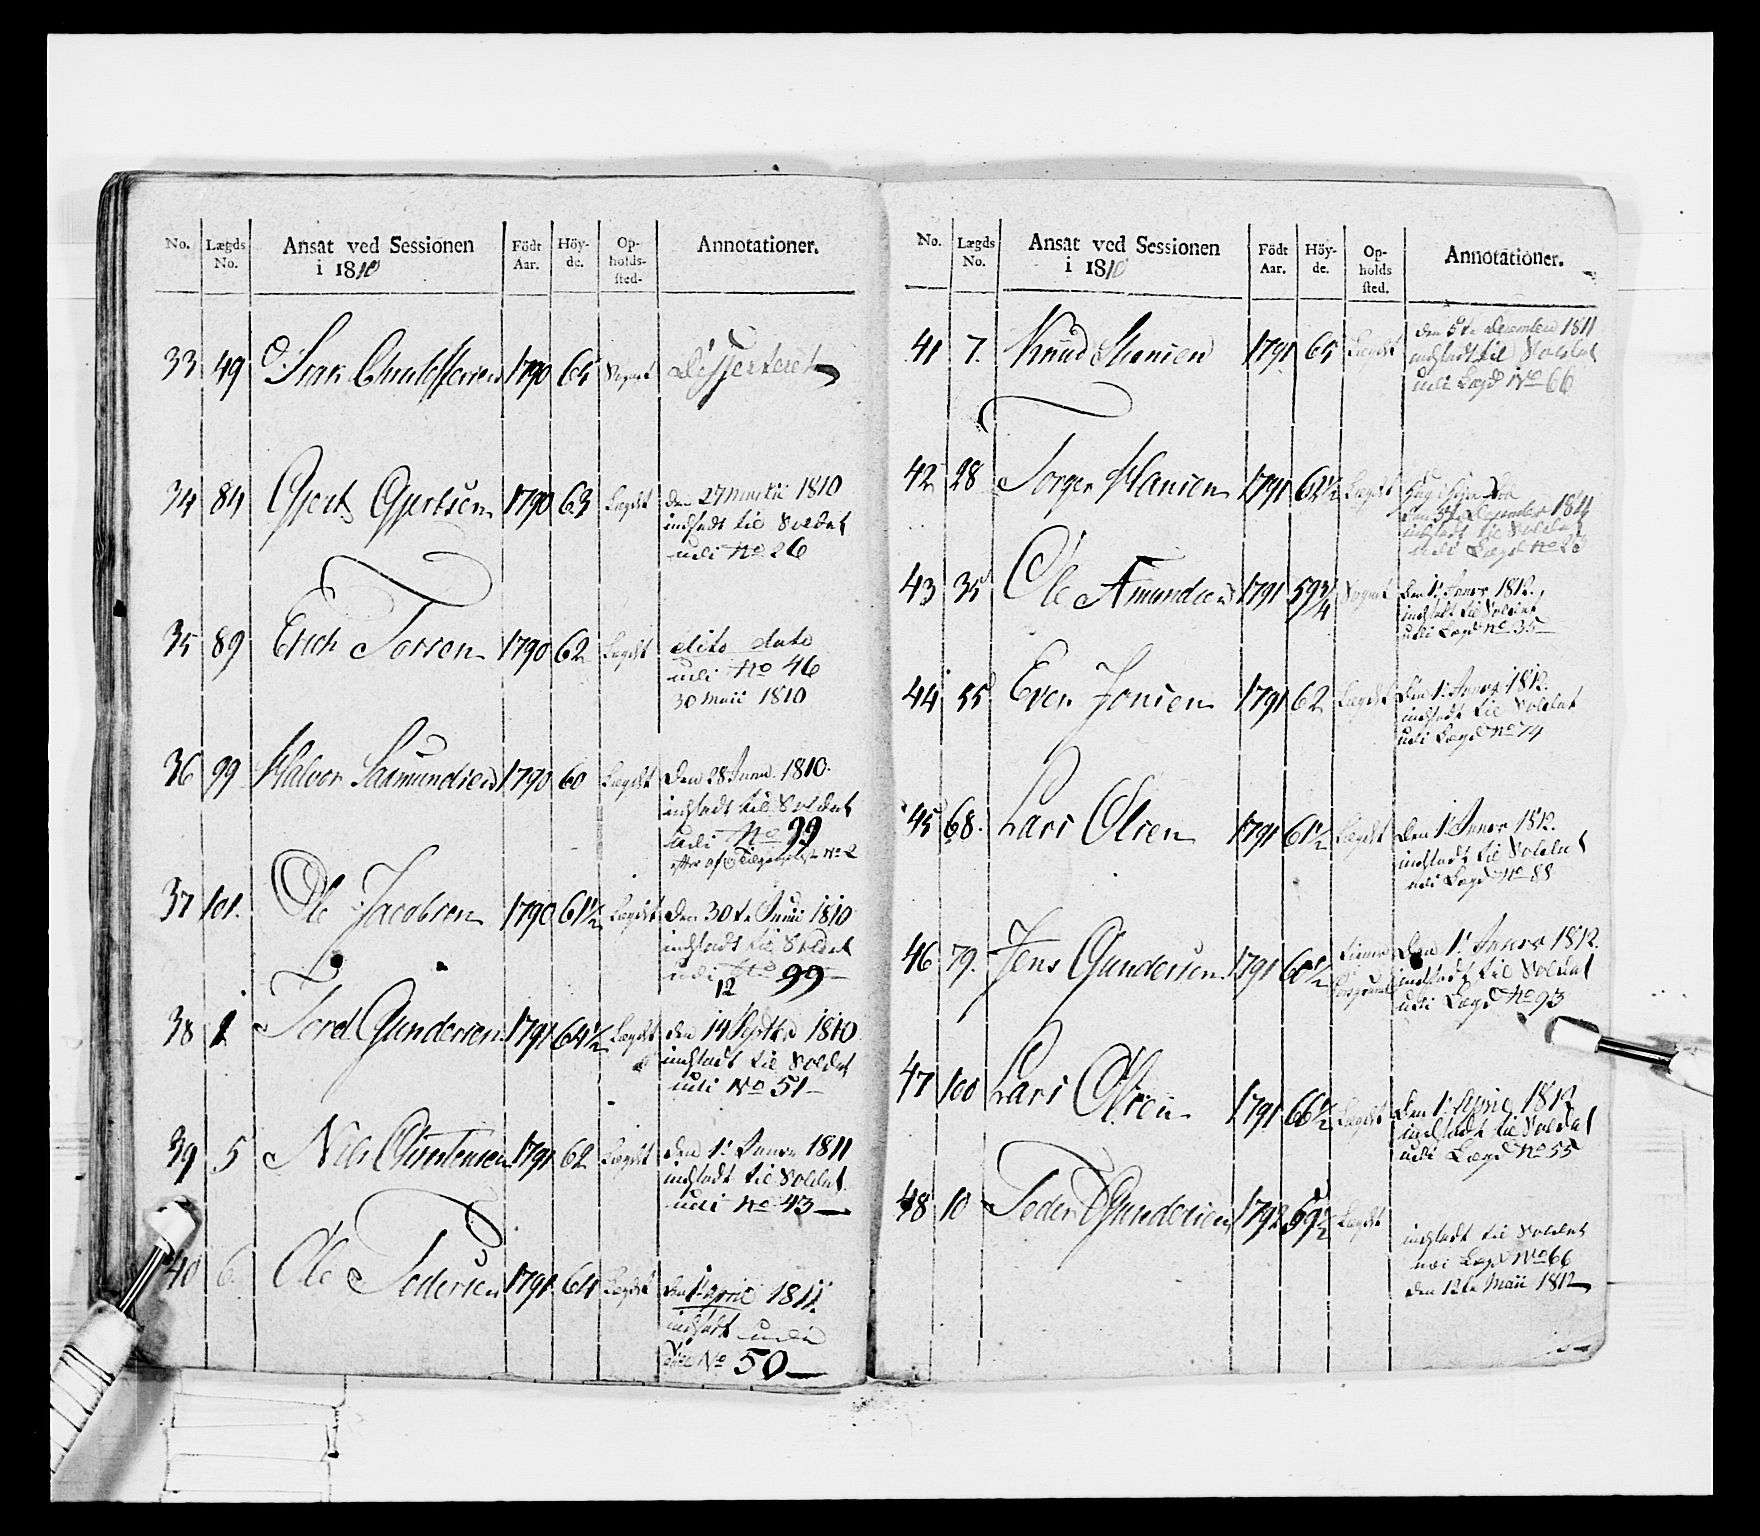 No. Lægds No. Ansat ved Sessionen i 1810 Födt Aar. Höyde. Opholdssted. Annotationer.
33 49 Isak 1790 64 Sognet Dessertert
34 84 Gjert Gjertsen 1790 63 Lægdt den 27 Martii 1810
indsadt til Soldat
udi No 26
35 89 Erich Torsen 1790 62 Lægdt dito dato
udi No 46
30 Maii 1810
36 99 Halvor Saamundsen 1790 60 Lægdt Den 28 Junii 1810.
indsadt til Soldat
udi No 99
37 101. Ole Jacobsen 1790 61½ Lægdt Den 30te Junii 1810
indsadt til Soldat
udi No 99
12
38 1 Tord Gundersen 1791 64½ Lægdt den 14 Septbr 1810
indsadt til Soldat
udi No 51
39 5 Nils Christensen 1791 62 Lægdt den 1. Janva 1811
indsadt til Soldat
udi No 43
40 6. Ole Pedersen 1791 64 Lægdt den 1 April 1811
indsadt udi
No 50
No. Lægds No. Ansat ved Sessionen i 1810 Födt Aar. Höyde. Opholds sted. Annotationer.
41 7. Knud Hansen 1791 65 Lægdt den 5te December 1811
indsadt til Soldat
udi Lægd No 66
42 28 Torger Hansen 1791 62½ Lægdt
den 5te December 1811
indsadt til Soldat
udi Lægd No 23
43 35 Ole Amundsen 1791 59¾ Sognet Den 1. Janvr 1812.
indsadt til Soldat
udi Lægd No 35
44 55 Even Jonsen 1791 62 Lægdt Den 1. Janvr 1812.
indsadt til Soldat
udi Lægd No 74
45 68. Lars Olsen 1791 61½ Lægdt Den 1. Janvr 1812.
indsadt til Soldat
udi Lægd No 88
46 79. Jens Gundersen 1791 60½ Den 1. Janvr 1812.
indsadt til Soldat
udi Lægd No 93
47 100 Lars Olsen 1791 66½ Lægdt Den 1. April 1812
indsadt til Soldat
udi Lægd No 55
48 10 Peder Gundersen 1792 59½ Lægdt
indsadt til Soldat
udi Lægd No 66
den 12te Maii 1812